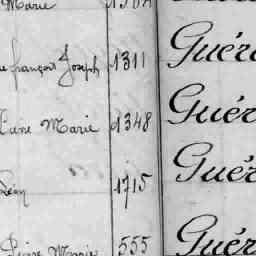 Marie
françois Joseph 1311 Guér
Marie 1348 Guér
Léon 1715 Guér
Pierre Marie 555 Guér